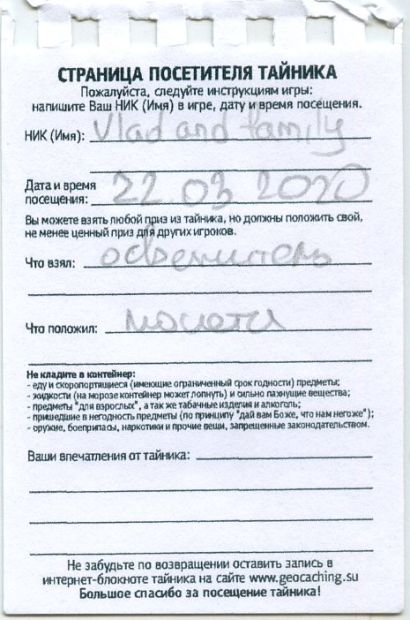 СТРАНИЦА ПОСЕТИТЕЛЯ ТАЙНИКА
Пожалуйста, следуйте инструкциям игры:
напишите Ваш НИК (Имя) в игре, дату и время посещения.
НИК (Имя): Vlad and family
Дата и время
посещения: 22 03 2020
Вы можете взять любой приз из тайника, но должны положить свой,
не менее ценный приз для других игроков.
Что взял: освежитель
Что положил: монета
Не кладите в контейнер:
- еду и скоропортящиеся (имеющие ограниченный срок годности) предметы;
- жидкости (на морозе контейнер может лопнуть) и сильно пахнущие вещества;
- предметы "для взрослых", а так же табачные изделия и алкоголь;
- пришедшие в негодность предметы (по принципу "дай вам Боже, что нам негоже");
- оружие, боеприпасы, наркотики и прочие вещи, запрещенные законодательством.
Ваши впечатления от тайника:
Не забудьте по возвращении оставить запись в
интернет-блокноте тайника на сайте www.geocaching.su
Большое спасибо за посещение тайника!